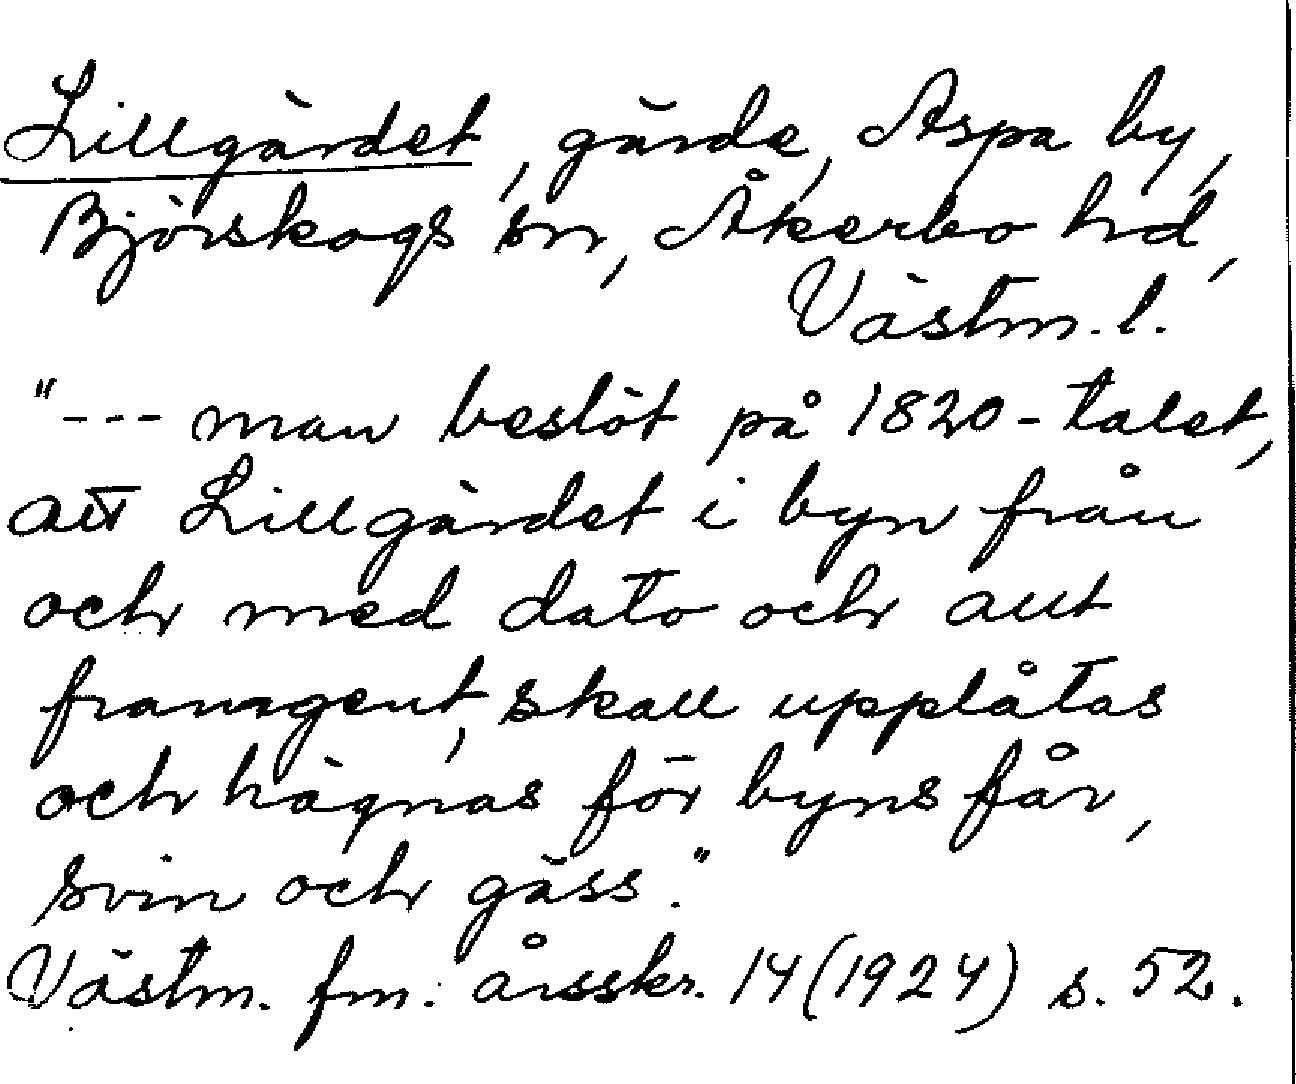 Lillgärdet, gärde, Aspa by,
Björskogs sn, Åkerbo hd,
Västm. l.
"--- man beslöt på 1820-talet,
att Lillgärdet i byn från
och med dato och allt
framgent, skall upplåtas
och hägnas för byns får,
svin och gäss."
Västm. fm. årsskr. 14 (1924) s. 52.